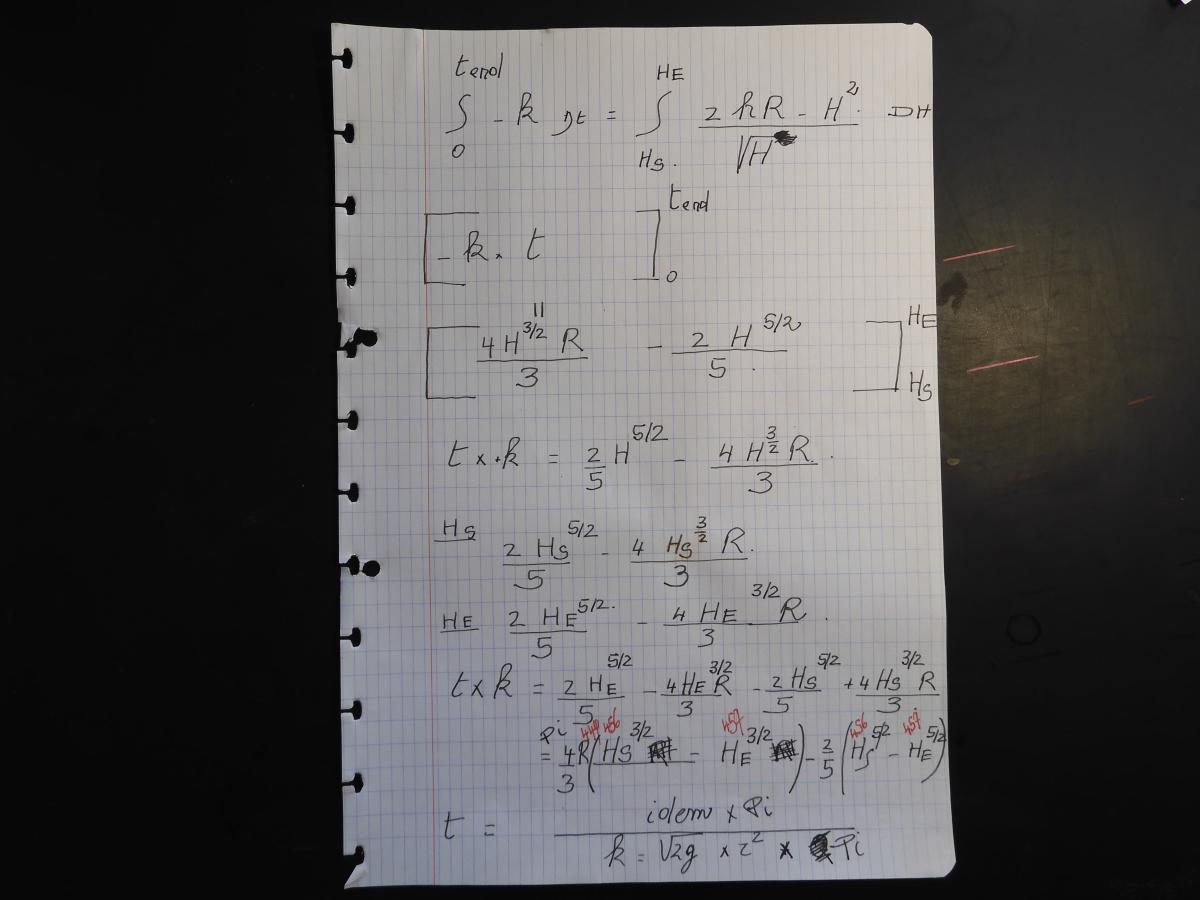 ∫₀^tend - k Dt = ∫_Hs.^HE (2 hR - H². / √H) DH
[- k . t]₀^tend
=
[4 H^3/2 R / 3 - 2 H^5/2 / 5 .]_Hs^HE
t × . k = 2/5 H^5/2 - 4 H^3/2 R / 3 .
Hs 2 Hs^5/2 / 5 - 4 Hs^3/2 R. / 3
HE 2 HE^5/2. / 5 - 4 HE^3/2 R / 3 .
t × k = 2 HE^5/2 / 5 - 4 HE^3/2 R / 3 - 2 Hs^5/2 / 5 + 4 Hs^3/2 R / 3
Pi 456 457 456 457
= 4/3 R (Hs^3/2 - HE^3/2) - 2/5 (Hs^5/2 - HE^5/2)
t = idem × Pi / k = √2g × r² × Pi